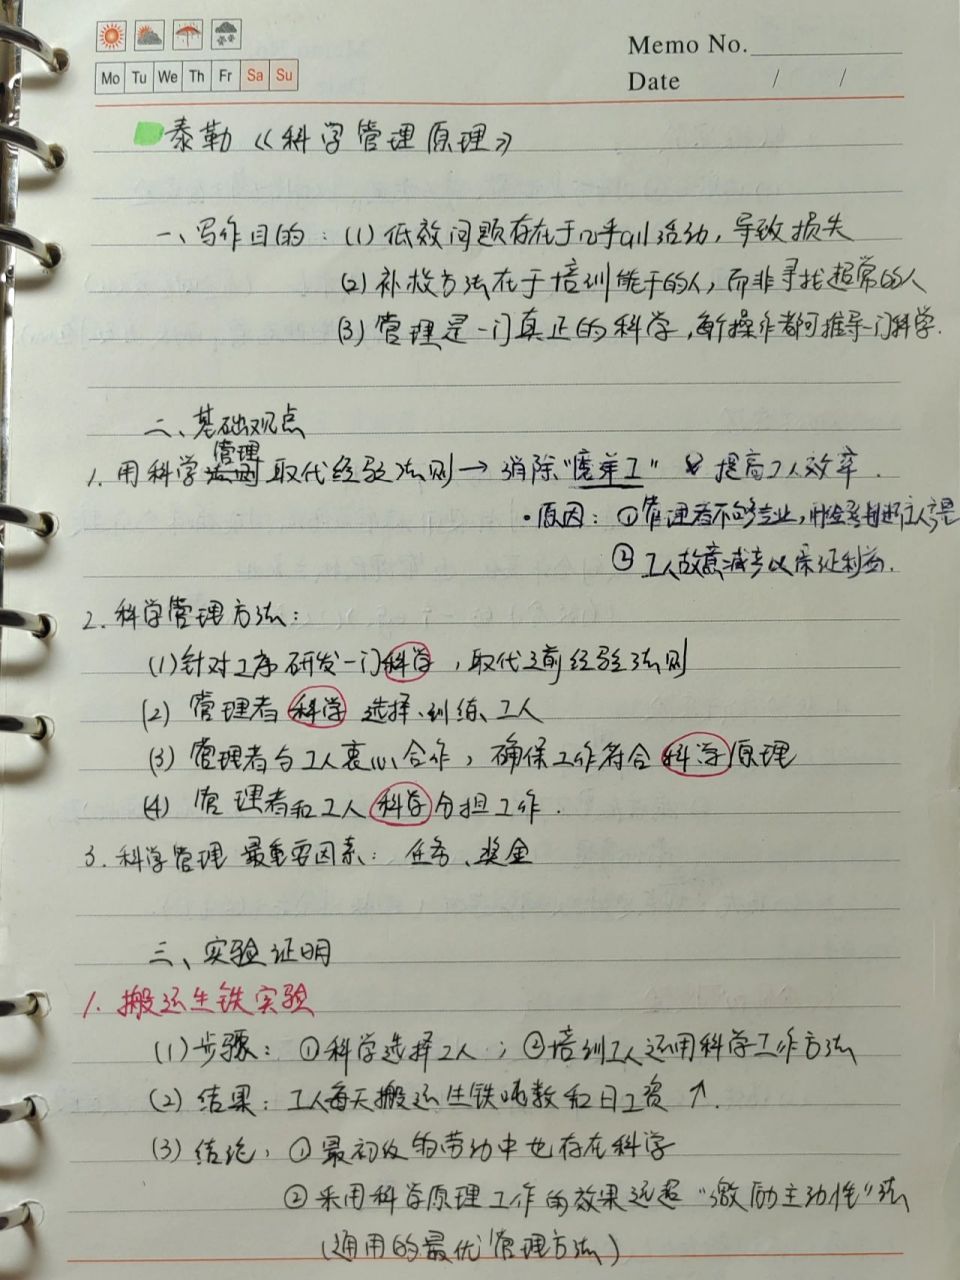 Memo No.
Mo Tu We Th Fr Sa Su
Date / /
泰勒《科学管理原理》
一、写作目的：(1) 低效问题存在于几乎all活动，导致损失
(2) 补救方法在于培训能干的人，而非寻找超常的人
(3) 管理是一门真正的科学，每个操作者都可推导一门科学.
二、基础观点
管理
1. 用科学法则取代经验法则→消除“磨洋工” 提高工人效率.
·原因：①管理者不够专业，
②工人故意减少以保证利益.
2. 科学管理方法：
(1) 针对工序研发一门科学，取代之前经验法则
(2) 管理者科学选择、训练、工人
(3) 管理者与工人衷心合作，确保工作符合科学原理
(4) 管理者和工人科学分担工作.
3. 科学管理最重要因素：任务、奖金
三、实验证明
1. 搬运生铁实验
(1) 步骤：①科学选择工人；②培训工人运用科学工作方法
(2) 结果：工人每天搬运生铁吨数和日工资↑.
(3) 结论：①最初级的劳动中也存在科学
②采用科学原理工作的效果远超“激励主动性”法
(通用的最优管理方法)